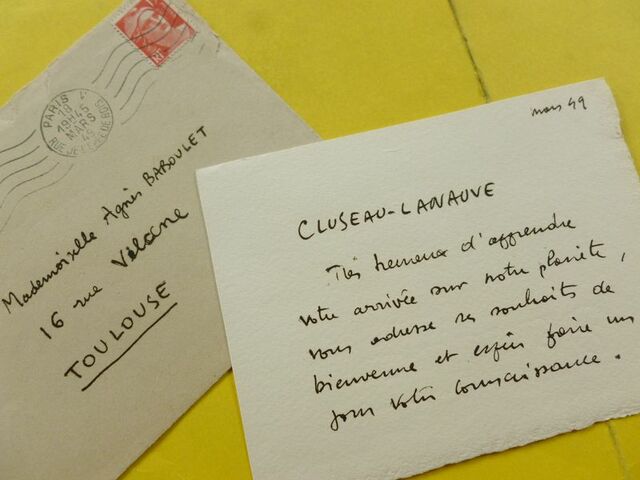 PARIS V
18
19H45
MARS
49
Mademoiselle Agnès BABOULET
16 rue Vélane
TOULOUSE
mars 49
CLUSEAU-LANAUVE
Très heureux d'apprendre
votre arrivée sur notre planète,
vous adresse ses souhaits de
bienvenue et espère faire un
jour votre connaissance.